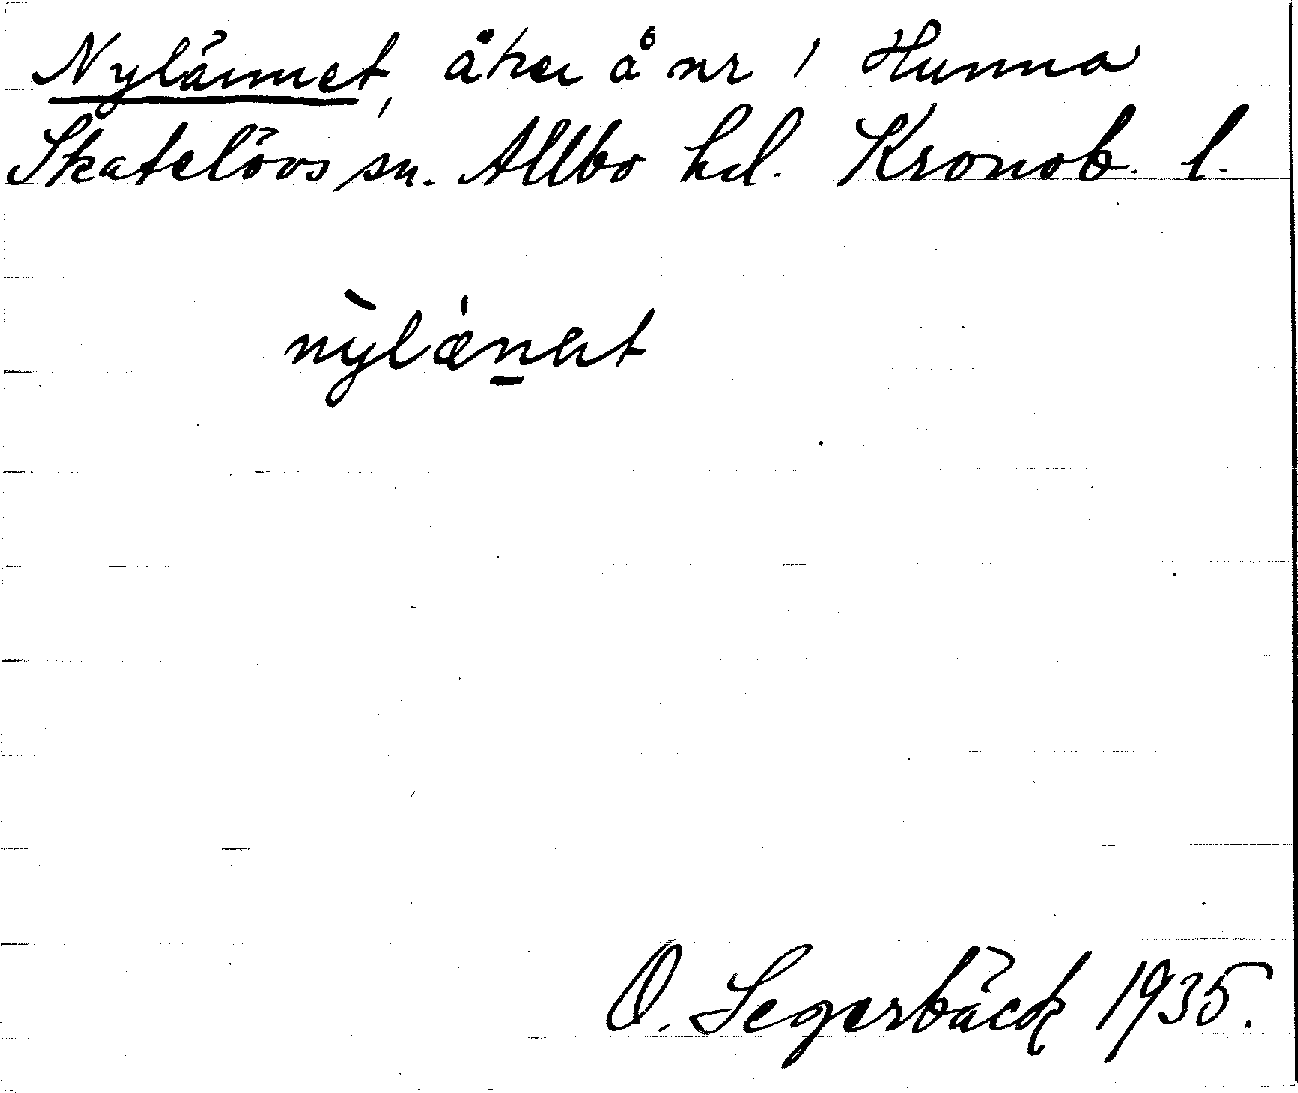 Nylännet, åker å nr 1 Hunna
Skatelövs sn. Allbo hd. Kronob. l.
nỳlǽnət
O. Segerbäck 1935.